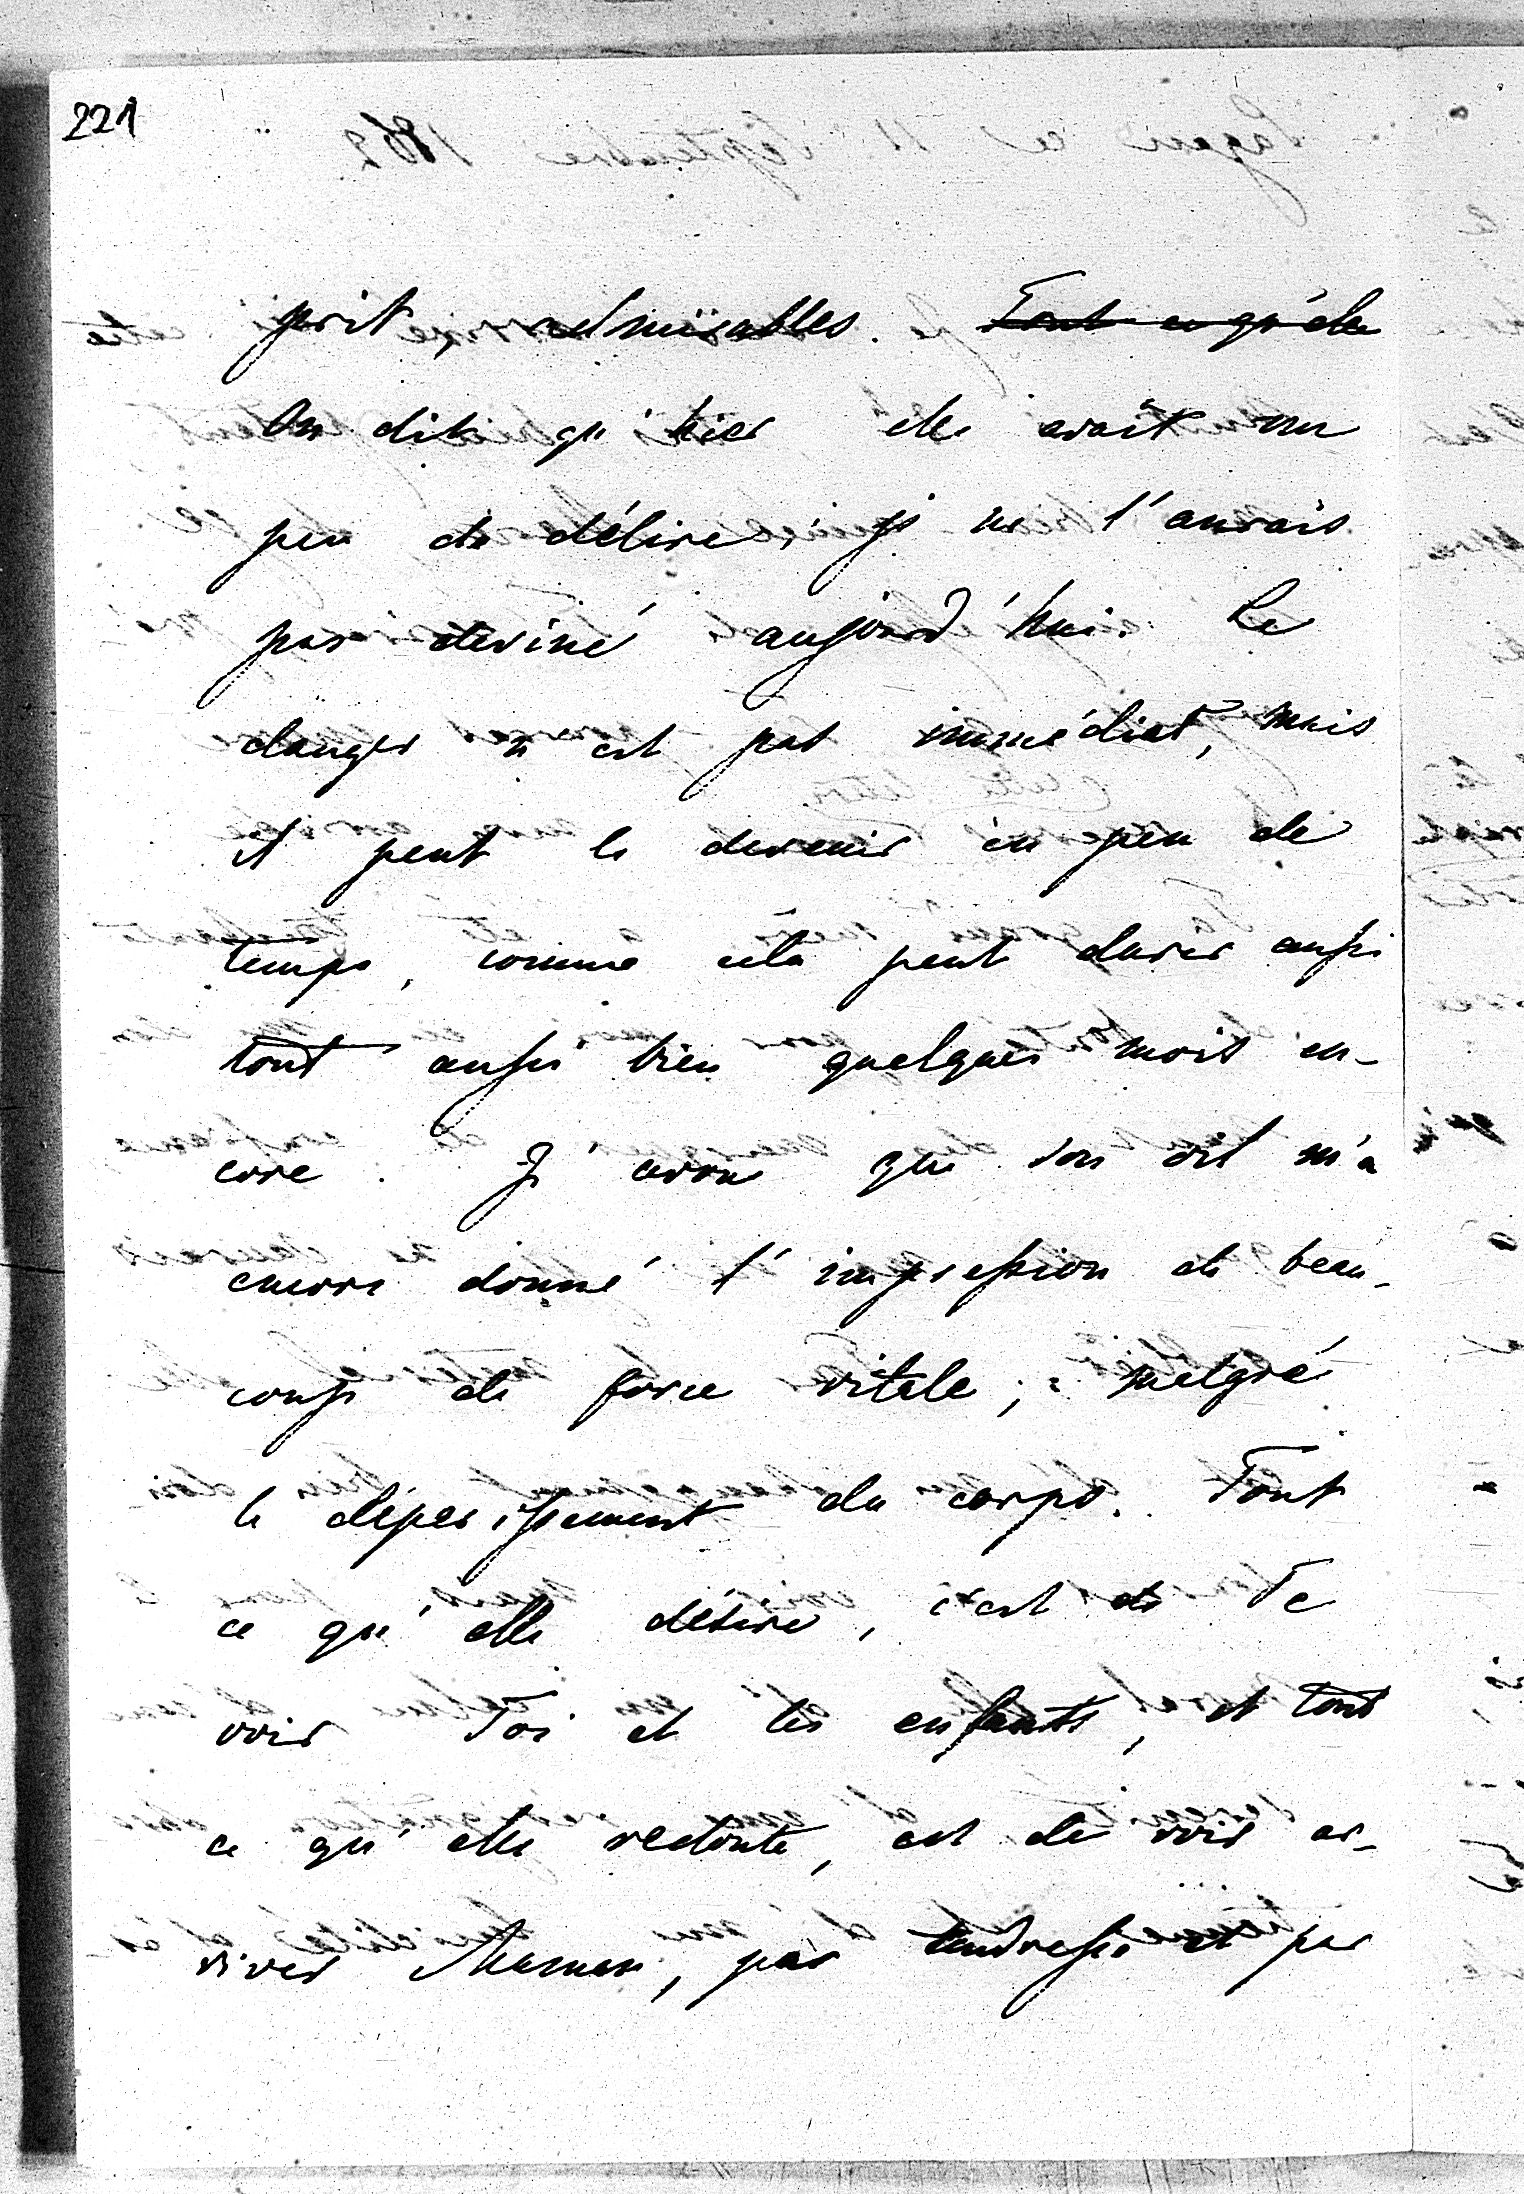 221
prit, admirables. Tout ce qu'elle
On dit qu'hier elle avait un
peu de délire; je ne l'aurais
pas deviné aujourd'hui. Le
danger n'est pas immédiat, mais
il peut le devenir en peu de
temps, comme cela peut durer aussi
tout aussi bien quelques mois en-
core. J'avoue que son œil m'a
encore donné l'impression de beau-
coup de force vitale; malgré
le dépérissement du corps. Tout
ce qu'elle désire, c'est de Te
voir Toi et tes enfants, et tout
ce qu'elle redoute, est de voir ar-
river Maman, par tendresse et par